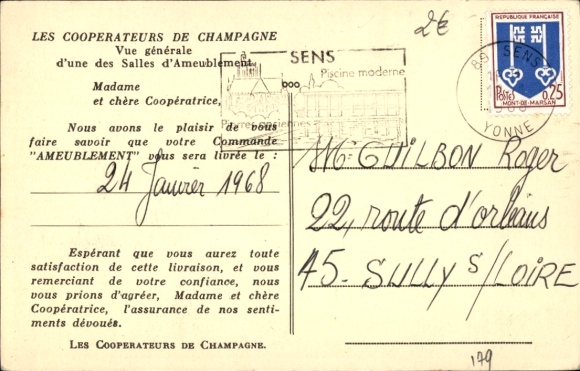 LES COOPERATEURS DE CHAMPAGNE
Vue générale
d'une des Salles d'Ameublement
Madame
et chère Coopératrice,
Nous avons le plaisir de vous
faire savoir que votre Commande
"AMEUBLEMENT" vous sera livrée le :
24 Janvier 1968
Espérant que vous aurez toute
satisfaction de cette livraison, et vous
remerciant de votre confiance, nous
vous prions d'agréer, Madame et chère
Coopératrice, l'assurance de nos senti-
ments dévoués.
LES COOPERATEURS DE CHAMPAGNE.
2€
SENS
Piscine moderne
89 SENS
YONNE
REPUBLIQUE FRANÇAISE
POSTES
0,25
MONT-DE-MARSAN
Mr GUILBON Roger
22, route d'orléans
45- SULLY S/LOIRE
179